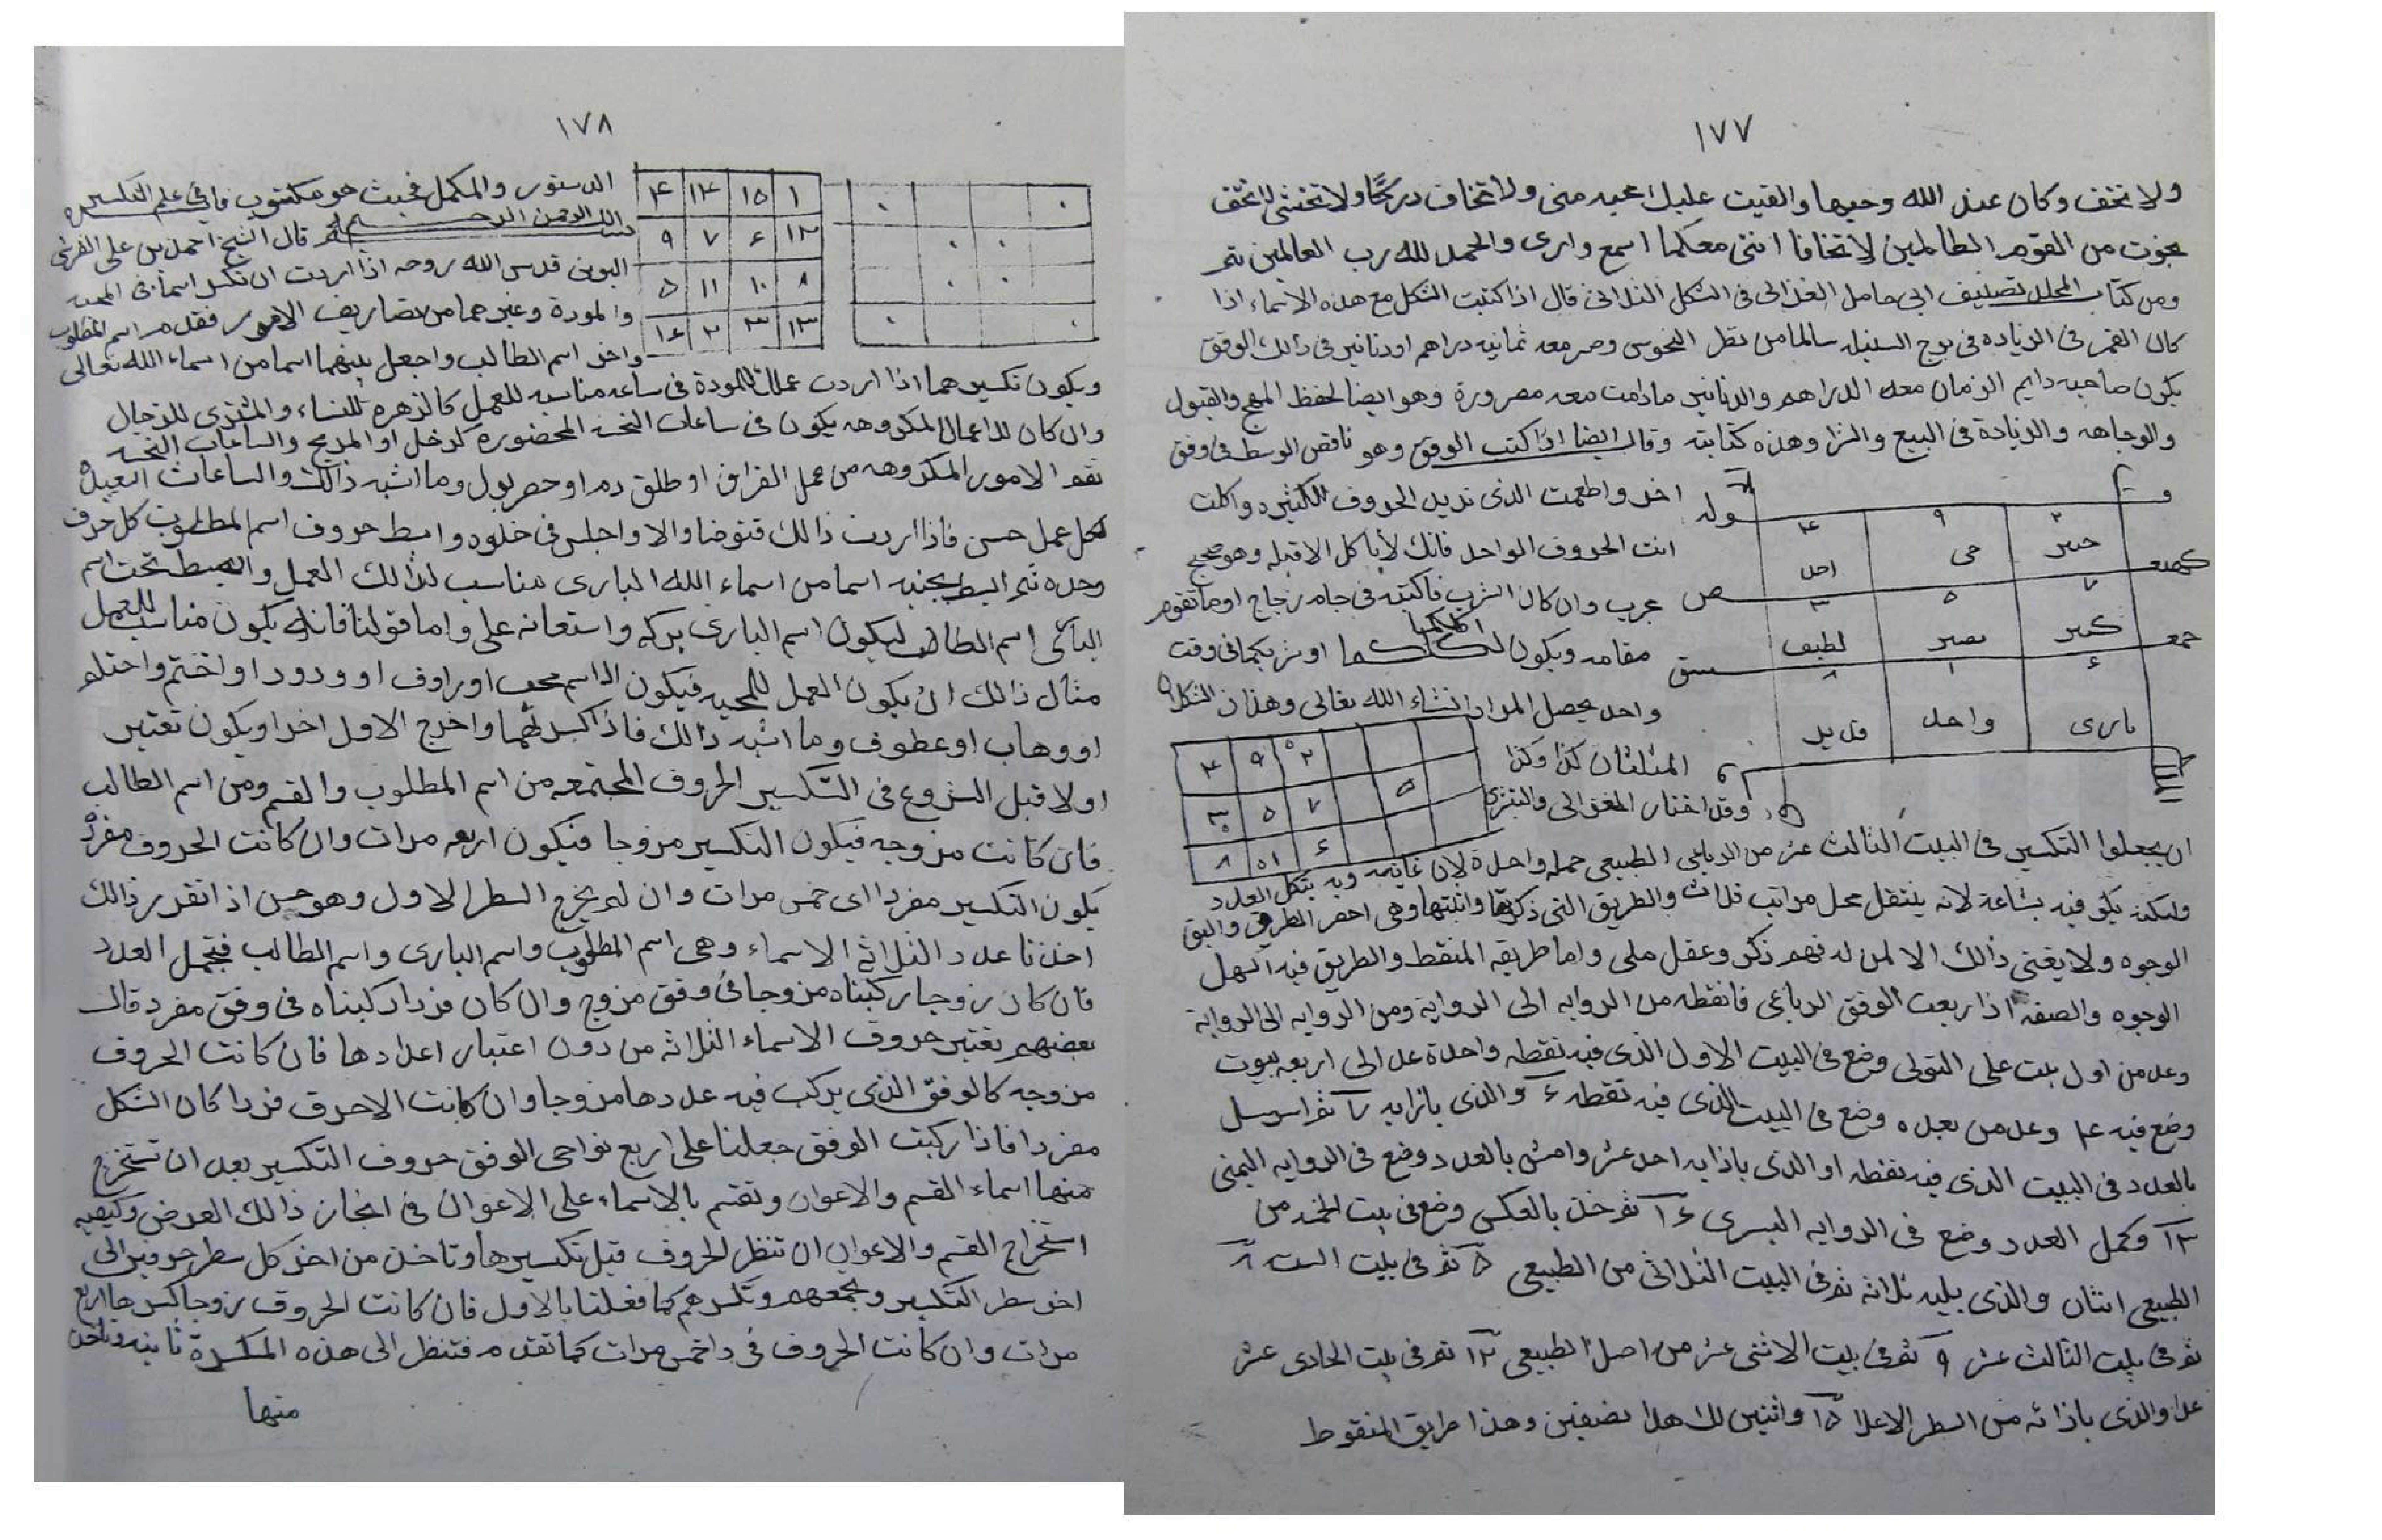 ١٧٧
ولا تخف وكان عند الله وجيها والقيت عليك محبه منى ولا تخاف دركا ولا تخشى لا تخف
نجوت من القوم الظالمين لا تخافا اننى معكما اسمع وارى والحمد لله رب العالمين تم
ومن كتاب المحلل تصنيف ابى حامل الغزالى فى الشكل الثلاثى قال اذا كتبت الشكل مع هذه الاسماء اذا
كان القمر فى الزياده فى برج السنبله سالما من نظر النحوس وصر معه ثمانيه دراهم او دنانير فى ذالك الوفق
يكون صاحبه دايم الزمان معه الدراهم والدنانير مادامت معه مصرورة وهو ايضا لحفظ المهج والقبول
والوجاهه والزيادة فى البيع والشرا وهذه كتابته وقال ايضا اذا كتب الوفق وهو ناقص الوسط فى وفق
اخر واطعمت الذى تريد الحروف الكثيره واكلت
انت الحروف الواحد فانك لا يأكل الاقبله وهو صحيح
مجرب وان كان الشرب فاكتبه فى جام زجاج او ما تقوم
مقامه ويكون اكلكما او شربكما فى وقت
واحد يحصل المراد انشاء الله تعالى وهذان الشكلان
المثلثان كذا وكذا
وقد اختار الغزالى والتبريزى
قوله
٤ ٩ ٢
احد حى خبير
كهيعص
٣ ٥ ٧
لطيف بصير كبير
حمعسق
٨ ١ ٦
قديد واحد بارى
٤ ٩ ٢
٣ ٥ ٧ ٥
٨ ١ ٦
ان يجعلوا التكسير فى البيت الثالث عشر من الرباعى الطبيعى جمله واحدة لان غايته وبه يتكل العدد
ولكنه يكن فيه بشاعة لانه ينتقل محل مراتب ثلاث والطريق التى ذكرتها واثبتها وهى احصر الطرق واليق
الوجوه ولا يغنى ذالك الا لمن له فهم ذكى وعقل ملى واما طريقه المنقط والطريق فيه اسهل
الوجوه والصفه اذا ربعت الوفق الرباعى فانقطه من الزوايه الى الزواية ومن الزوايه الى الزواية
وعد من اول بيت على التولى وضع فى البيت الاول الذى فيه نقطه واحدة عد الى اربعه بيوت
وضع فيه ٤ وعد من بعده وضع فى البيت الذى فيه نقطه ٦ والذى بازايه ٧ ثم ارسل
بالعدد فى البيت الذى فيه نقطه او الذى باذايه احد عشر وامش بالعدد وضع فى الزوايه اليمنى
١٣ وكمل العدد وضع فى الزوايه اليسرى ١٦ ثم خذ بالعكس وضع فى بيت الخمسه من
الطبيعى اثنان والذى يليه ثلاثه ثم فى البيت الثلاثى من الطبيعى ٥ ثم فى بيت الست ٨
ثم فى بيت الثالث عشر ٩ ثم فى بيت الاثنى عشر من اصل الطبيعى ١٢ ثم فى بيت الحادى عشر
عدا والذى باذائه من السطر الاعلا ١٥ واثنين لك هذا نصفين وهذا طريق المنقوط
١٧٨
٤ ١٤ ١٥ ١
٩ ٧ ٦ ١٢
٥ ١١ ١٠ ٨
١٦ ٢ ٣ ١٣
الدستور والمكمل فحيث هو مكتوب فافى علم التكسير
بسم الله الرحمن الرحيم قال الشيخ احمد بن على القرشى
البونى قدس الله روحه اذا اردت ان تكسر اسما فى المحبه
والمودة وغيرهما من تصاريف الامور فقدم اسم المطلوب
واخر اسم الطالب واجعل بينهما اسما من اسماء الله تعالى
ويكون تكسيرهما اذا اردت عملا للمودة فى ساعه مناسبه للعمل كالزهره للنساء والمشترى للرجال
وان كان للاعمال المكروهه يكون فى ساعات النحسه المحضوره كزحل او المريخ والساعات النحسه
نقم الامور المكروهه من عمل الفراق او طلق دم او حصر بول وما اشبه ذالك والساعات السعيده
لكل عمل حسن فاذا اردت ذالك فتوضا والا واجلس فى خلوه وابسط حروف اسم المطلوب كل حرف
وحده ثم ابسط بجنبه اسما من اسماء الله البارى مناسب لذالك العمل والبسط تحت اسم
البارى اسم الطالب ليكون اسم البارى بركه واستعانه على واما قولنا فانه يكون مناسب للعمل
مثال ذالك ان يكون العمل للمحبه فيكون الاسم محب او راوف او ودود او اختم واحتلو
او وهاب او عطوف وما اشبه ذالك فاذا كسرتهما واخرج الاول اخر او يكون تعتبر
اولا قبل الشروع فى التكسير الحروف المجتمعه من اسم المطلوب والقسم ومن اسم الطالب
فان كانت مزوجه فيكون التكسير مزوجا فيكون اربعه مرات وان كانت الحروف مفرد
يكون التكسير مفردا اى خمس مرات وان لم يخرج السطر الاول وهو حسن اذا تقرر ذالك
اخذنا عدد الثلاثة الاسماء وهى اسم المطلوب واسم البارى واسم الطالب فيجمل العدد
فان كان زوجا ركبناه مزوجا فى وفق مزوج وان كان فردا ركبناه فى وفق مفرد قال
بعضهم تعتبر حروف الاسماء الثلاثه من دون اعتبار اعدادها فان كانت الحروف
مزوجه كالوفق الذى يركب فيه عددها مزوجا وان كانت الاحرف فردا كان الشكل
مفردا فاذا ركبت الوفق جعلنا على اربع نواحى الوفق حروف التكسير بعد ان تستخرج
منها اسماء القسم والاعوان وتقسم بالاسماء على الاعوان فى انجاز ذالك الغرض وكيفيه
استخراج القسم والاعوان ان تنظر لحروف قبل تكسيرها وتاخذ من اخر كل سطر حرفين الى
اخر سطر التكسير وتجمعهم وتكسرهم كما فعلنا بالاول فان كانت الحروف زوجا كسرها اربع
مرات وان كانت الحروف فردا خمس مرات كما تقدم فتنظر الى هذه المكسرة ثانيه وتاخذ
منها